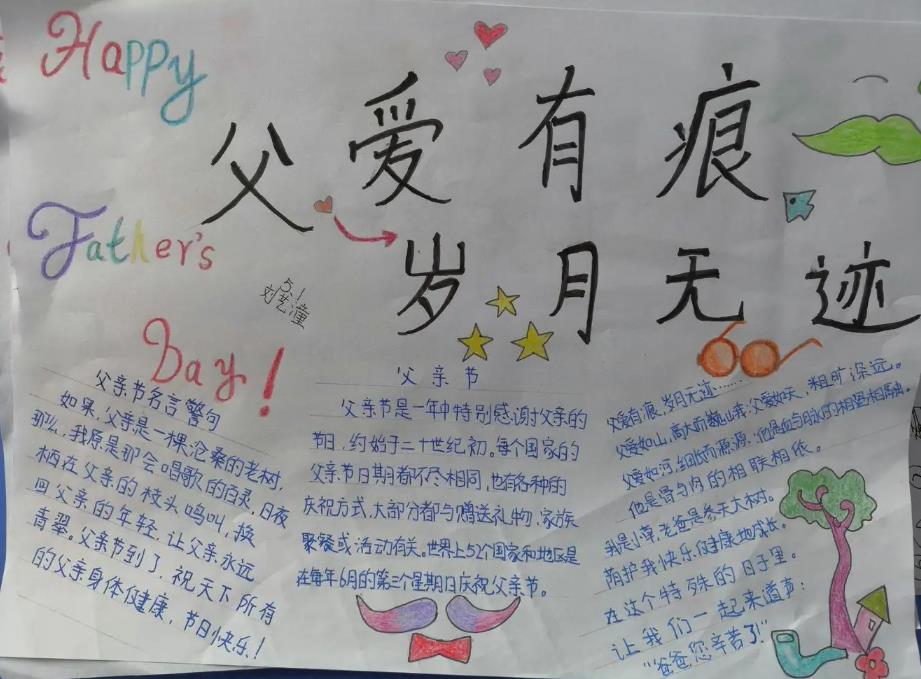 Happy
Father's
Day!
父爱有痕
岁月无迹
5.1
刘艺潼
父亲节名言警句
如果,父亲是一棵沧桑的老树,
那么,我愿是那会唱歌的百灵,日夜
栖在父亲的枝头鸣叫,换
回父亲的年轻,让父亲永远
青翠。父亲节到了,祝天下所有
的父亲身体健康,节日快乐!
父亲节
父亲节是一年中特别感谢父亲的
节日,约始于二十世纪初,每个国家的
父亲节日期都不尽相同,也有各种的
庆祝方式,大部分都与赠送礼物,家族
聚餐或活动有关。世界上52个国家和地区是
在每年6月的第三个星期日庆祝父亲节。
父爱有痕,岁月无迹……
父爱如山,高大而巍峨;父爱如天,粗旷深远。
父爱如河,细长而源源,他是血与脉的相竖相融。
他是骨与肉的相联相依。
我是小草,老爸是参天大树。
荫护我快乐,健康地成长。
在这个特殊的日子里。
让我们一起来道声:
“爸爸您辛苦了!”